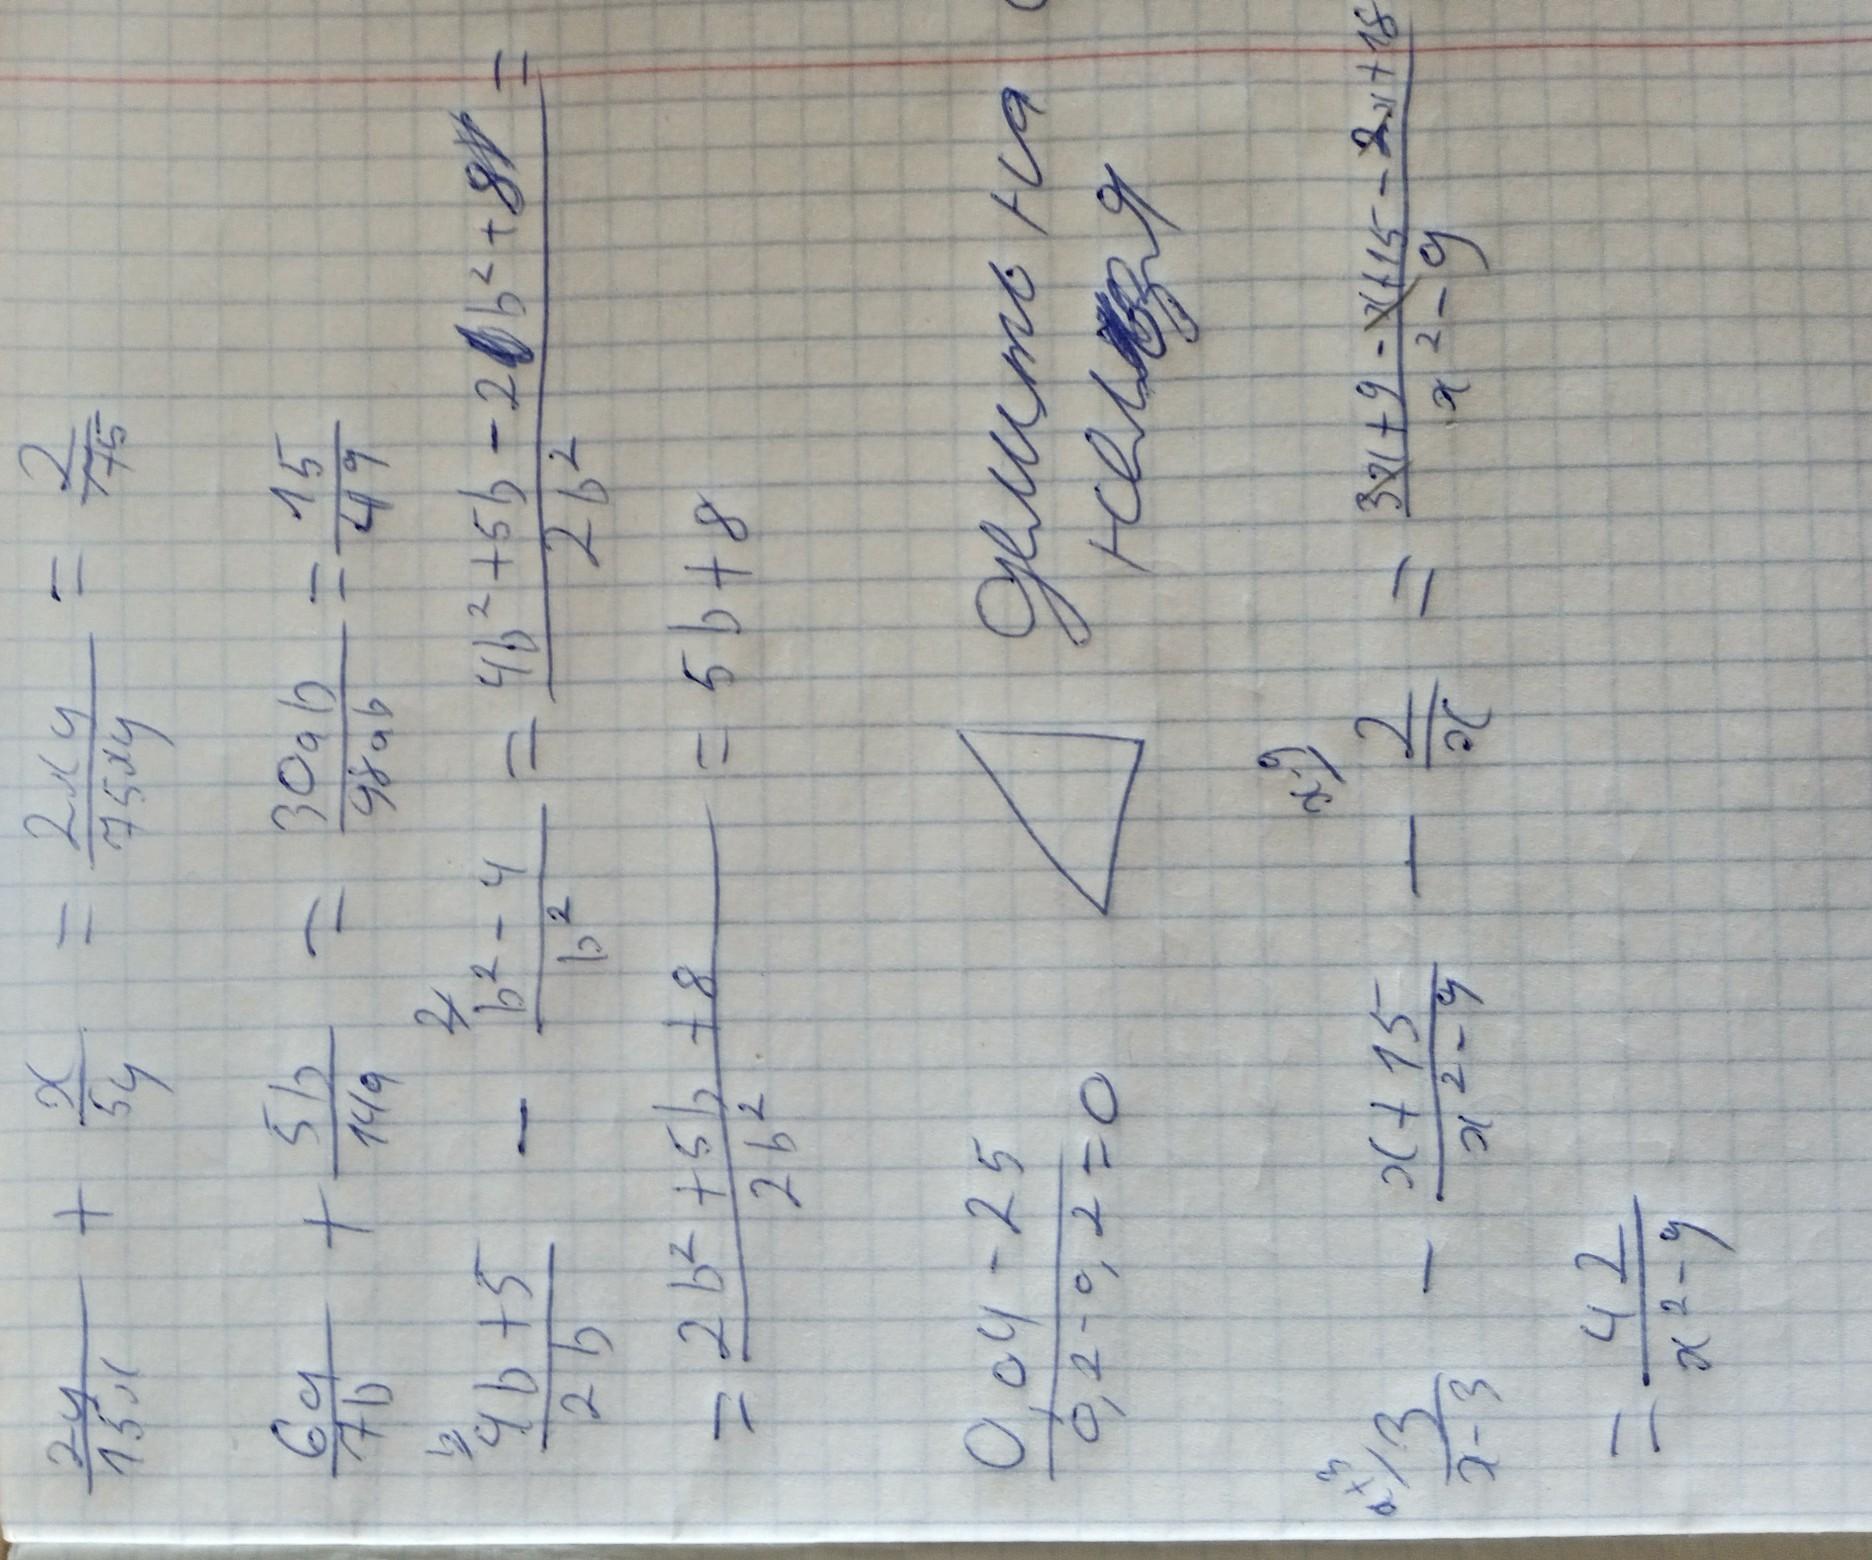 2y/15x + x/5y = 2xy/75xy = 2/75
6a/7b + 5b/14a = 30ab/98ab = 15/49
b) 4b+5/2b - 2) b²-4/b² = 4b²+5b-2b²+8/2b² =
= 2b²+5b+8/2b² = 5b+8
0,04-25/0,2-0,2=0
Делить на
нельзя
x+3) 3/x-3 - x+15/x²-9 - x-9) 2/x = 3x+9-x+15-2x+18/x²-9
= 42/x²-9